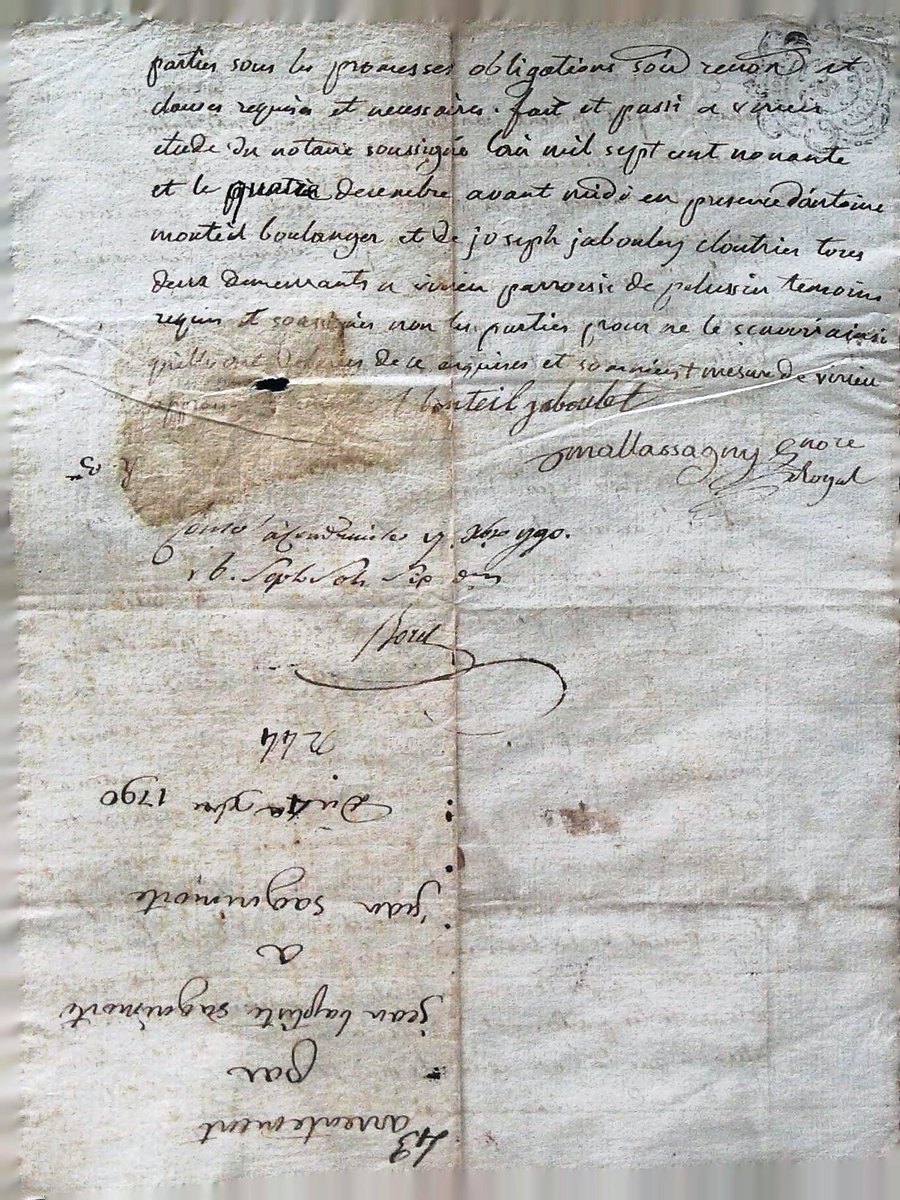 parties sous les promesses obligations soud renond et
clauses requises et necessaires. fait et passé a virieu
etude du notaire soussigné l'an mil sept cent nonante
et le quatre decembre avant midi en presence d'antoine
monteil boulanger et de joseph jabouley cloutrier tous
deux demeurants a virieu parroisse de pelussin temoins
requis et soussignés non les parties pour ne le scavoir ainsi
qu'elles ont de ce enquises et sommées mesure de virieu
Monteil jaboulet
mallassagny nore
Royal
Conté à Condrieu le 17. Xbre 1790.
Sept sols six den
Borel
244
Du 4e xbre 1790
jean sagnimorte
a
jean baptiste sagnimorte
par
arrentement
43